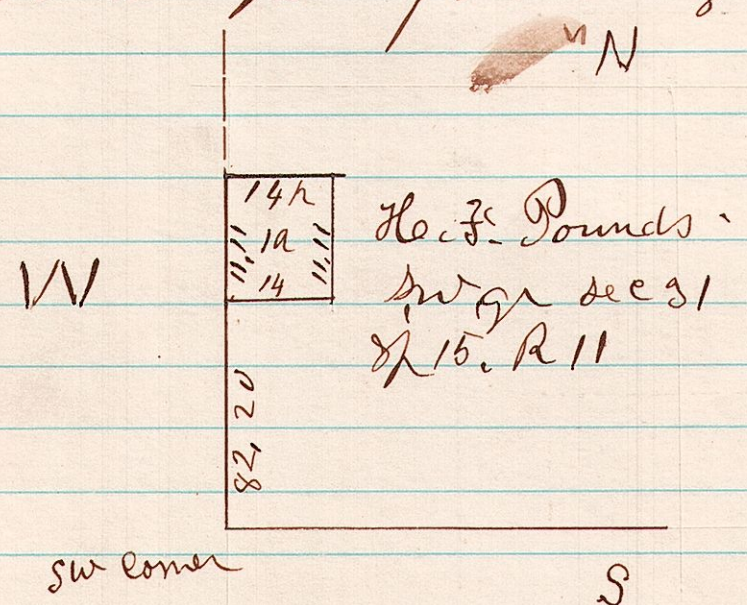 N
14 r
11,11 1a 11,11
14
H. F. Pounds
W
sw qr sec 31
Tp 15. R 11
82, 20
sw corner
S